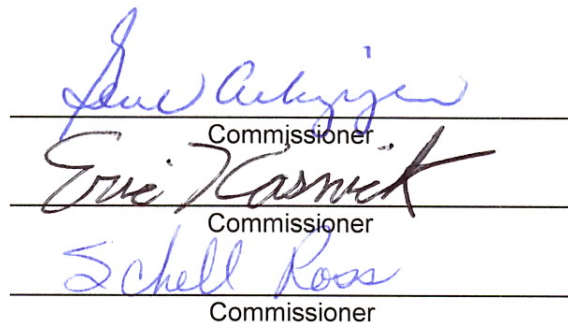 Commissioner
Eric Kasnick
Commissioner
Schell Ross
Commissioner